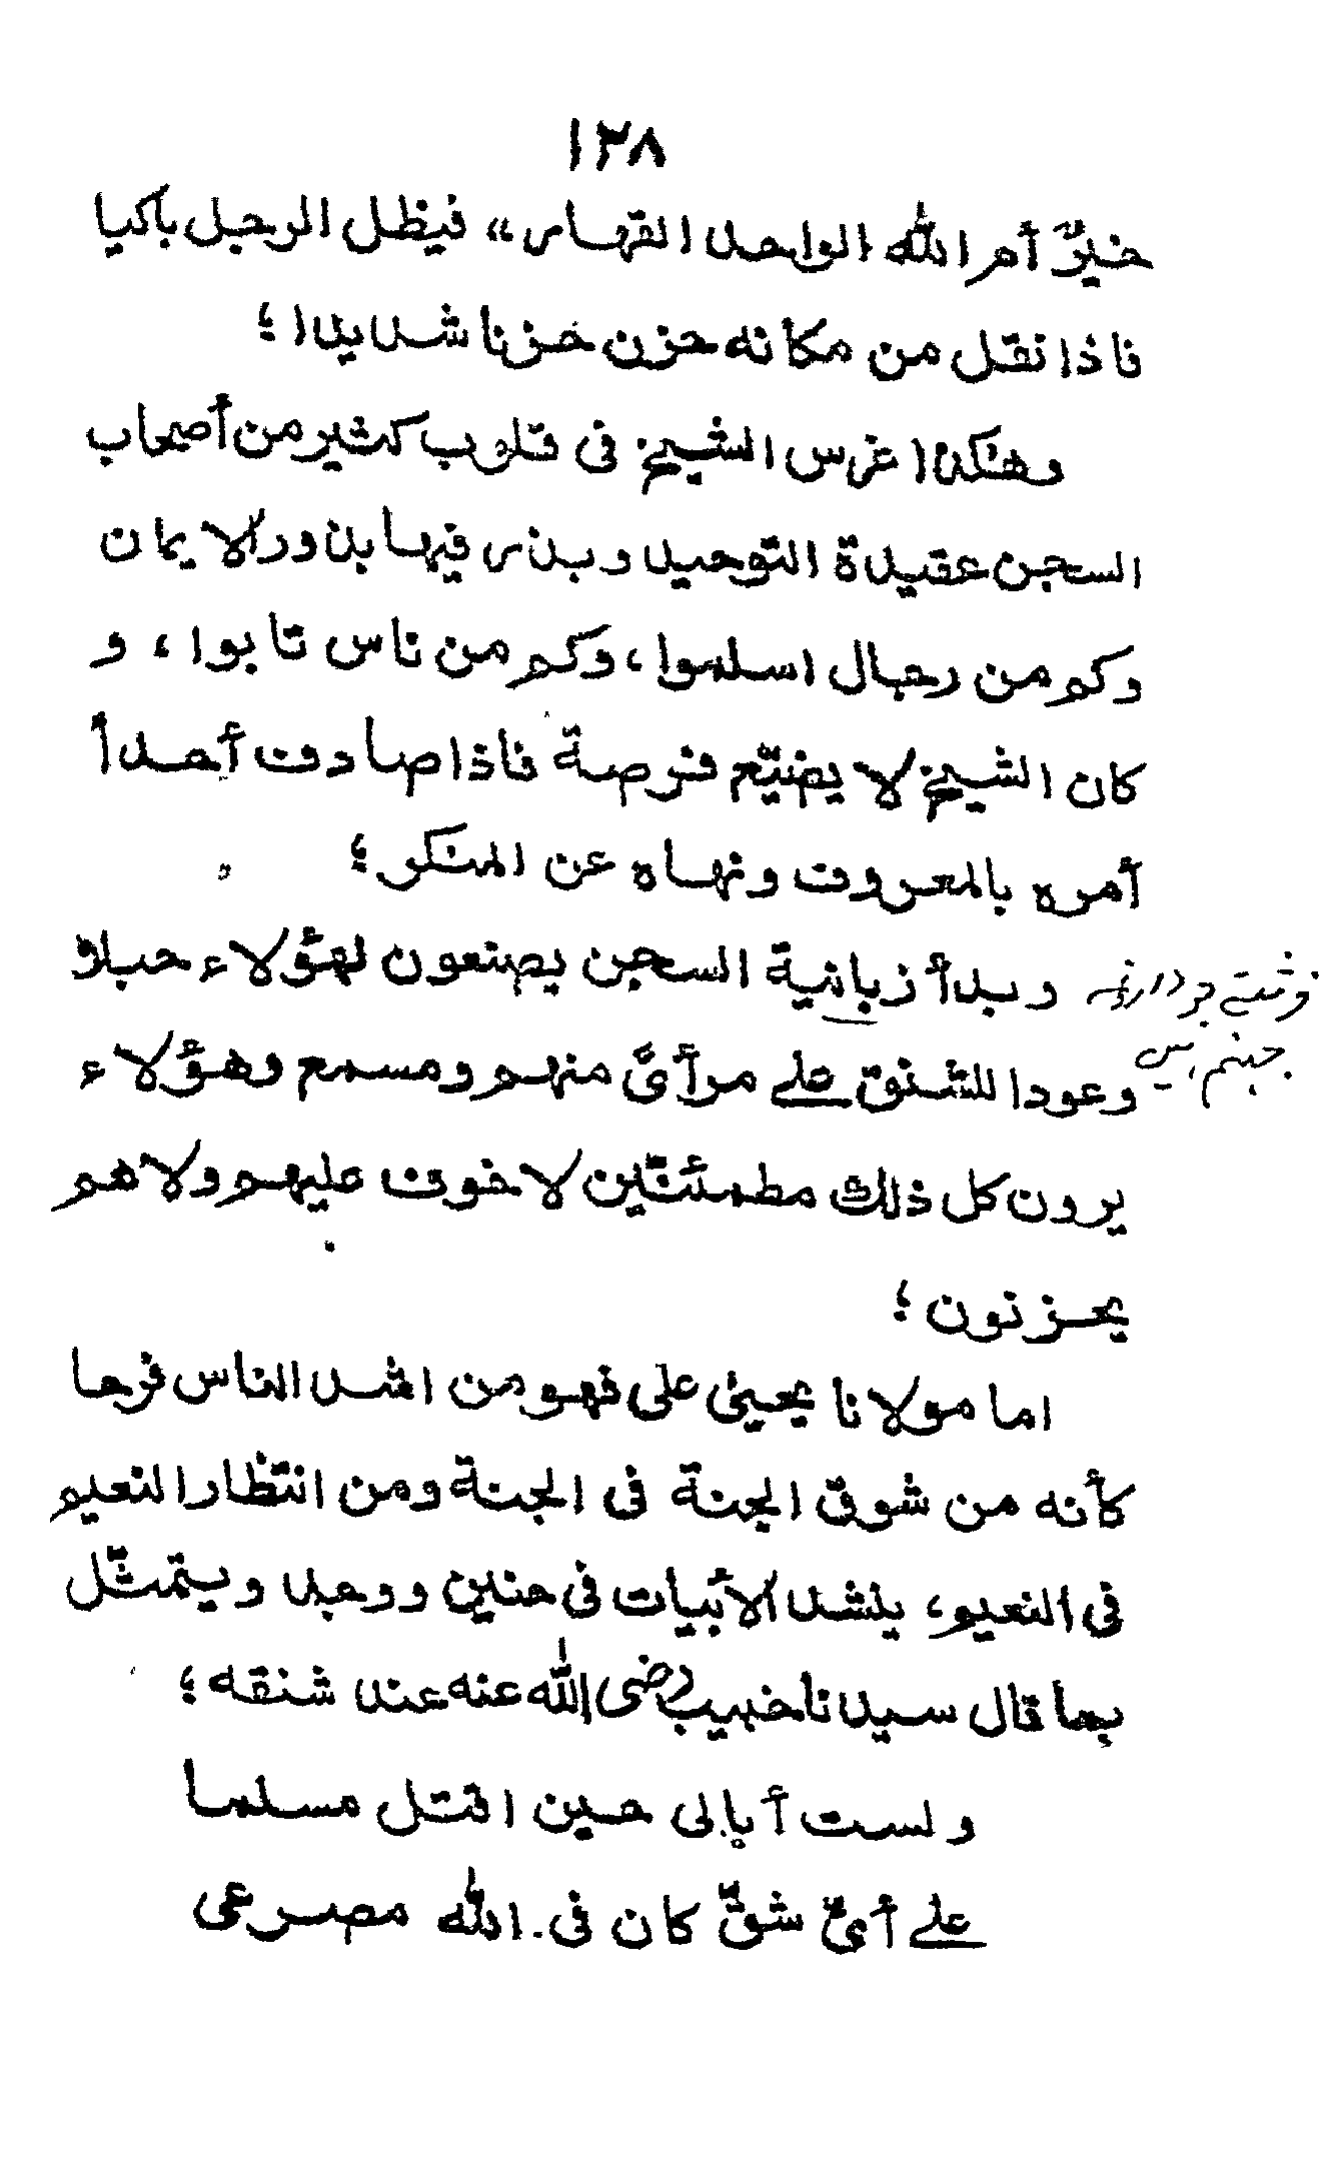 ١٣٨
خيرٌ أم الله الواحد القهار» فيظل الرجل باكيا
فاذا نقل من مكانه حزن حزنا شديدا؛
وهٰكذا غرس الشيخ فى قلوب كثير من أصحاب
السجن عقيدة التوحيد وبذر فيها بذور الايمان
وكم من رجال اسلموا، وكم من ناس تابوا، و
كان الشيخ لا يضيّع فرصة فاذا صادف أحداً
أمره بالمعروف ونهاه عن المنكر؛
وبدأ زبانية السجن يصنعون لهؤلاء حبلاً
فرشتے جو داروغہ
جہنم ہیں
وعودا للشنق علے مرأىً منهم ومسمع وهؤلاء
يرون كل ذلك مطمئنّين لا خوف عليهم ولا هم
يحزنون؛
اما مولانا يحيىٰ على فهو من اشد الناس فرحا
كأنه من شوق الجنة فى الجنة ومن انتظار النعيم
فى النعيم، ينشد الأبيات فى حنين ووجد ويتمثّل
بما قال سيدنا خبيب رضى الله عنه عند شنقه؛
ولست أبالى حين اقتل مسلما
علے أىّ شقّ كان فى الله مصرعى